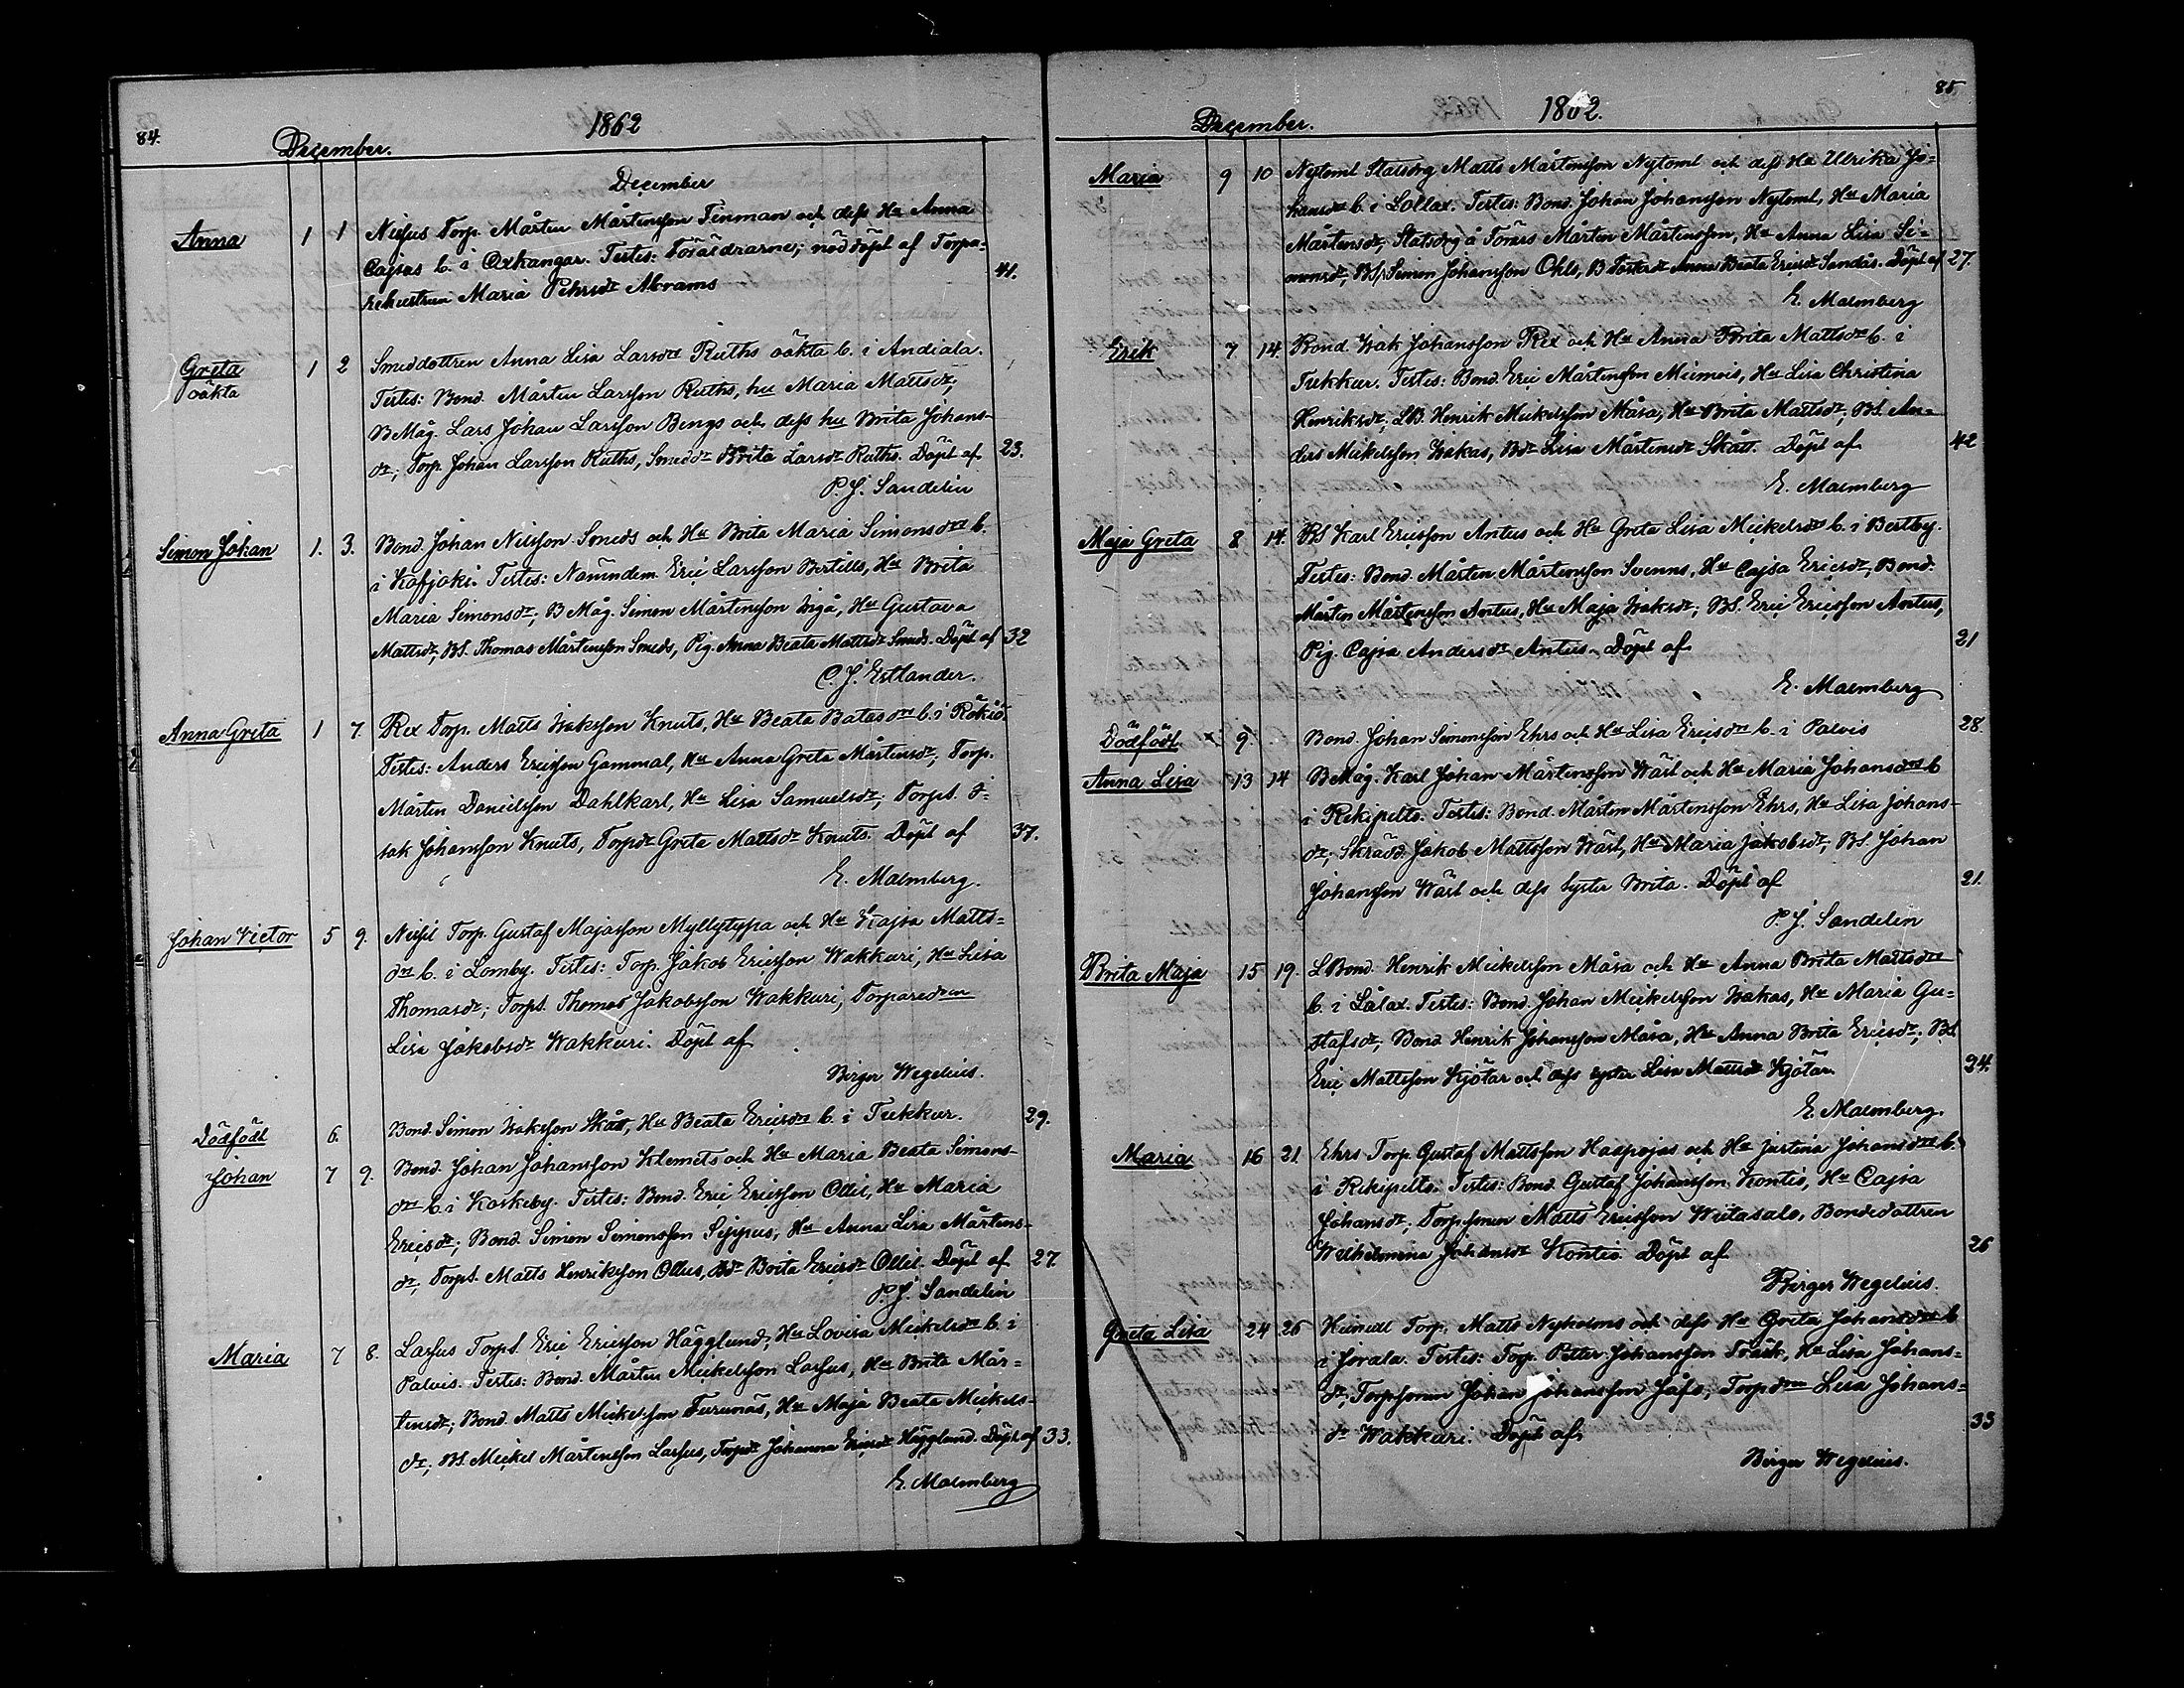 84.
December.
1862
December
Anna 1 1 Nissus Torp. Mårten Mårtensson Finman och dess Hu Anna
Cajsas b. i Oxkangar. Testes: Föräldrarne; nöd döpt af Torpa-
rehustrun Maria Pehrsdr Abrams 41.
Greta 1 2 Smeddottren Anna Lisa Larsdrs Ruths oäkta b. i Andiala.
oäkta Testes: Bond. Mårten Larsson Ruths, hu Maria Mattsdr,
BMåg. Lars Johan Larsson Bengs och dess hu Brita Johans-
dr; Torp. Johan Larsson Ruths, Smeddr Brita Larsdr Ruths. Döpt af 23.
P. J. Sandelin
Simon Johan 1. 3. Bond. Johan Nilsson Smeds och Hu Brita Maria Simonsdrs b.
i Kofjoki. Testes: Nämndem. Eric Larsson Bertills, Hu Brita
Maria Simonsdr; BMåg. Simon Mårtensson Ingå, Hu Gustava
Mattsdr, BS. Thomas Mårtensson Smeds, Pig. Anna Beata Mattsdr Smeds. Döpt af 32
C. J. Estlander.
Anna Greta 1 7. Rex Torp. Matts Isaksson Knuts, Hu Beata Matsdrs b. i Rökiö.
Testes: Anders Ericsson Gammal, Hu Anna Greta Mårtensdr, Torp.
Mårten Danielsson Dahlkarl, Hu Lisa Samuelsdr; Torps. I-
sak Johansson Knuts, Torpdr Greta Mattsdr Knuts. Döpt af 37.
E. Malmberg.
Johan Victor 5 9. Nissil Torp. Gustaf Majasson Myllytyppa och Hu Kajsa Matts-
drs b. i Lomby. Testes: Torp. Jakob Ericsson Wakkuri, Hu Lisa
Thomasdr; Torps. Thomas Jakobsson Wakkuri, Torparedrn
Lisa Jakobsdr Wakkuri. Döpt af
Birger Wegelius.
Dödfödt 6. Bond. Simon Isaksson Skått, Hu Beata Ericsdrs b. i Tukkur. 29.
Johan 7 9. Bond. Johan Johansson Klemets och Hu Maria Beata Simons-
drs b. i Koskeby. Testes: Bond. Eric Ericsson Ollil, Hu Maria
Ericsdr; Bond. Simon Simonsson Sippus, Hu Anna Lisa Mårtens-
dr, Torps. Matts Henriksson Ollus, Bdr Brita Ericsdr Ollil. Döpt af 27.
P. J. Sandelin
Maria 7 8. Lassus Torps. Eric Ericsson Hägglund, Hu Lovisa Mickelsdrs b. i
Palvis. Testes: Bond. Mårten Mickelsson Lassus, Hu Brita Mår-
tensdr; Bond. Matts Mickelsson Furunäs, Hu Maja Beata Mickels-
dr; BS. Mickel Mårtensson Lassus, Torpdr Johanna Ericsdr Hägglund. Döpt af 33.
E. Malmberg
85.
December. 1862.
Maria 9 10 Nytoml Statsdrg Matts Mårtensson Nytoml och dess Hu Ulrika Jo-
hansdrs b. i Lollax. Testes: Bond. Johan Johansson Nytoml, Hu Maria
Mårtensdr; Statsdrg å Törars Mårten Mårtensson, Hu Anna Lisa Si-
monsdr, BS. Simon Johansson Ohls, B Fosterdr Anna Beata Ericsdr Sandås. Döpt af 27.
E. Malmberg
Erik 7 14. Bond Isak Johansson Rex och Hu Anna Brita Mattsdrs b. i
Tukkur. Testes: Bond. Eric Mårtensson Miemois, Hu Lisa Christina
Henriksdr; LB. Henrik Mickelsson Måsa, Hu Brita Mattsdr; BS. An-
ders Mickelsson Isakas, Bdr Lisa Mårtensdr Skått. Döpt af 42
E. Malmberg
Maja Greta 8 14. BS Karl Ericsson Antus och Hu Greta Lisa Mickelsdrs b. i Bertby.
Testes: Bond. Mårten Mårtensson Svenns, Hu Cajsa Ericsdr, Bond.
Mårten Mårtensson Antus, Hu Maja Isaksdr; BS. Eric Ericsson Antus,
Pig. Cajsa Andersdr Antus. Döpt af 21
E. Malmberg
Dödfödt. 9. Bond. Johan Simonsson Ehrs och Hu Lisa Ericsdrs b. i Palvis 28.
Anna Lisa 13 14 BMåg. Karl Johan Mårtensson Wäst och Hu Maria Johansdrs b
i Rekipelto. Testes: Bond. Mårten Mårtensson Ehrs, Hu Lisa Johans-
dr; Skrädd. Jakob Mattsson Wäst, Hu Maria Jakobsdr; BS. Johan
Johansson Wäst och dess syster Brita. Döpt af 21.
P. J. Sandelin
Brita Maja 15 19. LBond. Henrik Mickelsson Måsa och Hu Anna Brita Mattsdrs
b. i Lålax. Testes: Bond. Johan Mickelsson Isakas, Hu Maria Gu-
stafsdr; Bond Henrik Johansson Måsa, Hu Anna Brita Ericsdr; BS
Eric Mattsson Kjötar och dess syster Lisa Mattsdr Kjötar. 24.
E. Malmberg.
Maria 16 21. Ehrs Torp. Gustaf Mattsson Haapojas och Hu Justina Johansdrs b.
i Rekipelto. Testes: Bond. Gustaf Johansson Kontio, Hu Cajsa
Johansdr; Torpsonen Matts Ericsson Wiitasalo, Bondedottren
Wilhelmina Johansdr Kontio. Döpt af 26
Birger Wegelius.
Greta Lisa 24 26 Torp. Matts Nyholms och dess Hu Greta Johansdrs b
i Jörala. Testes: Torp. Petter Johansson Träsk, Hu Lisa Johans-
dr; Torpsonen Johan Johansson Jåfs, Torpdrn Lisa Johans-
dr Wakkuri. Döpt af 33
Birger Wegelius.